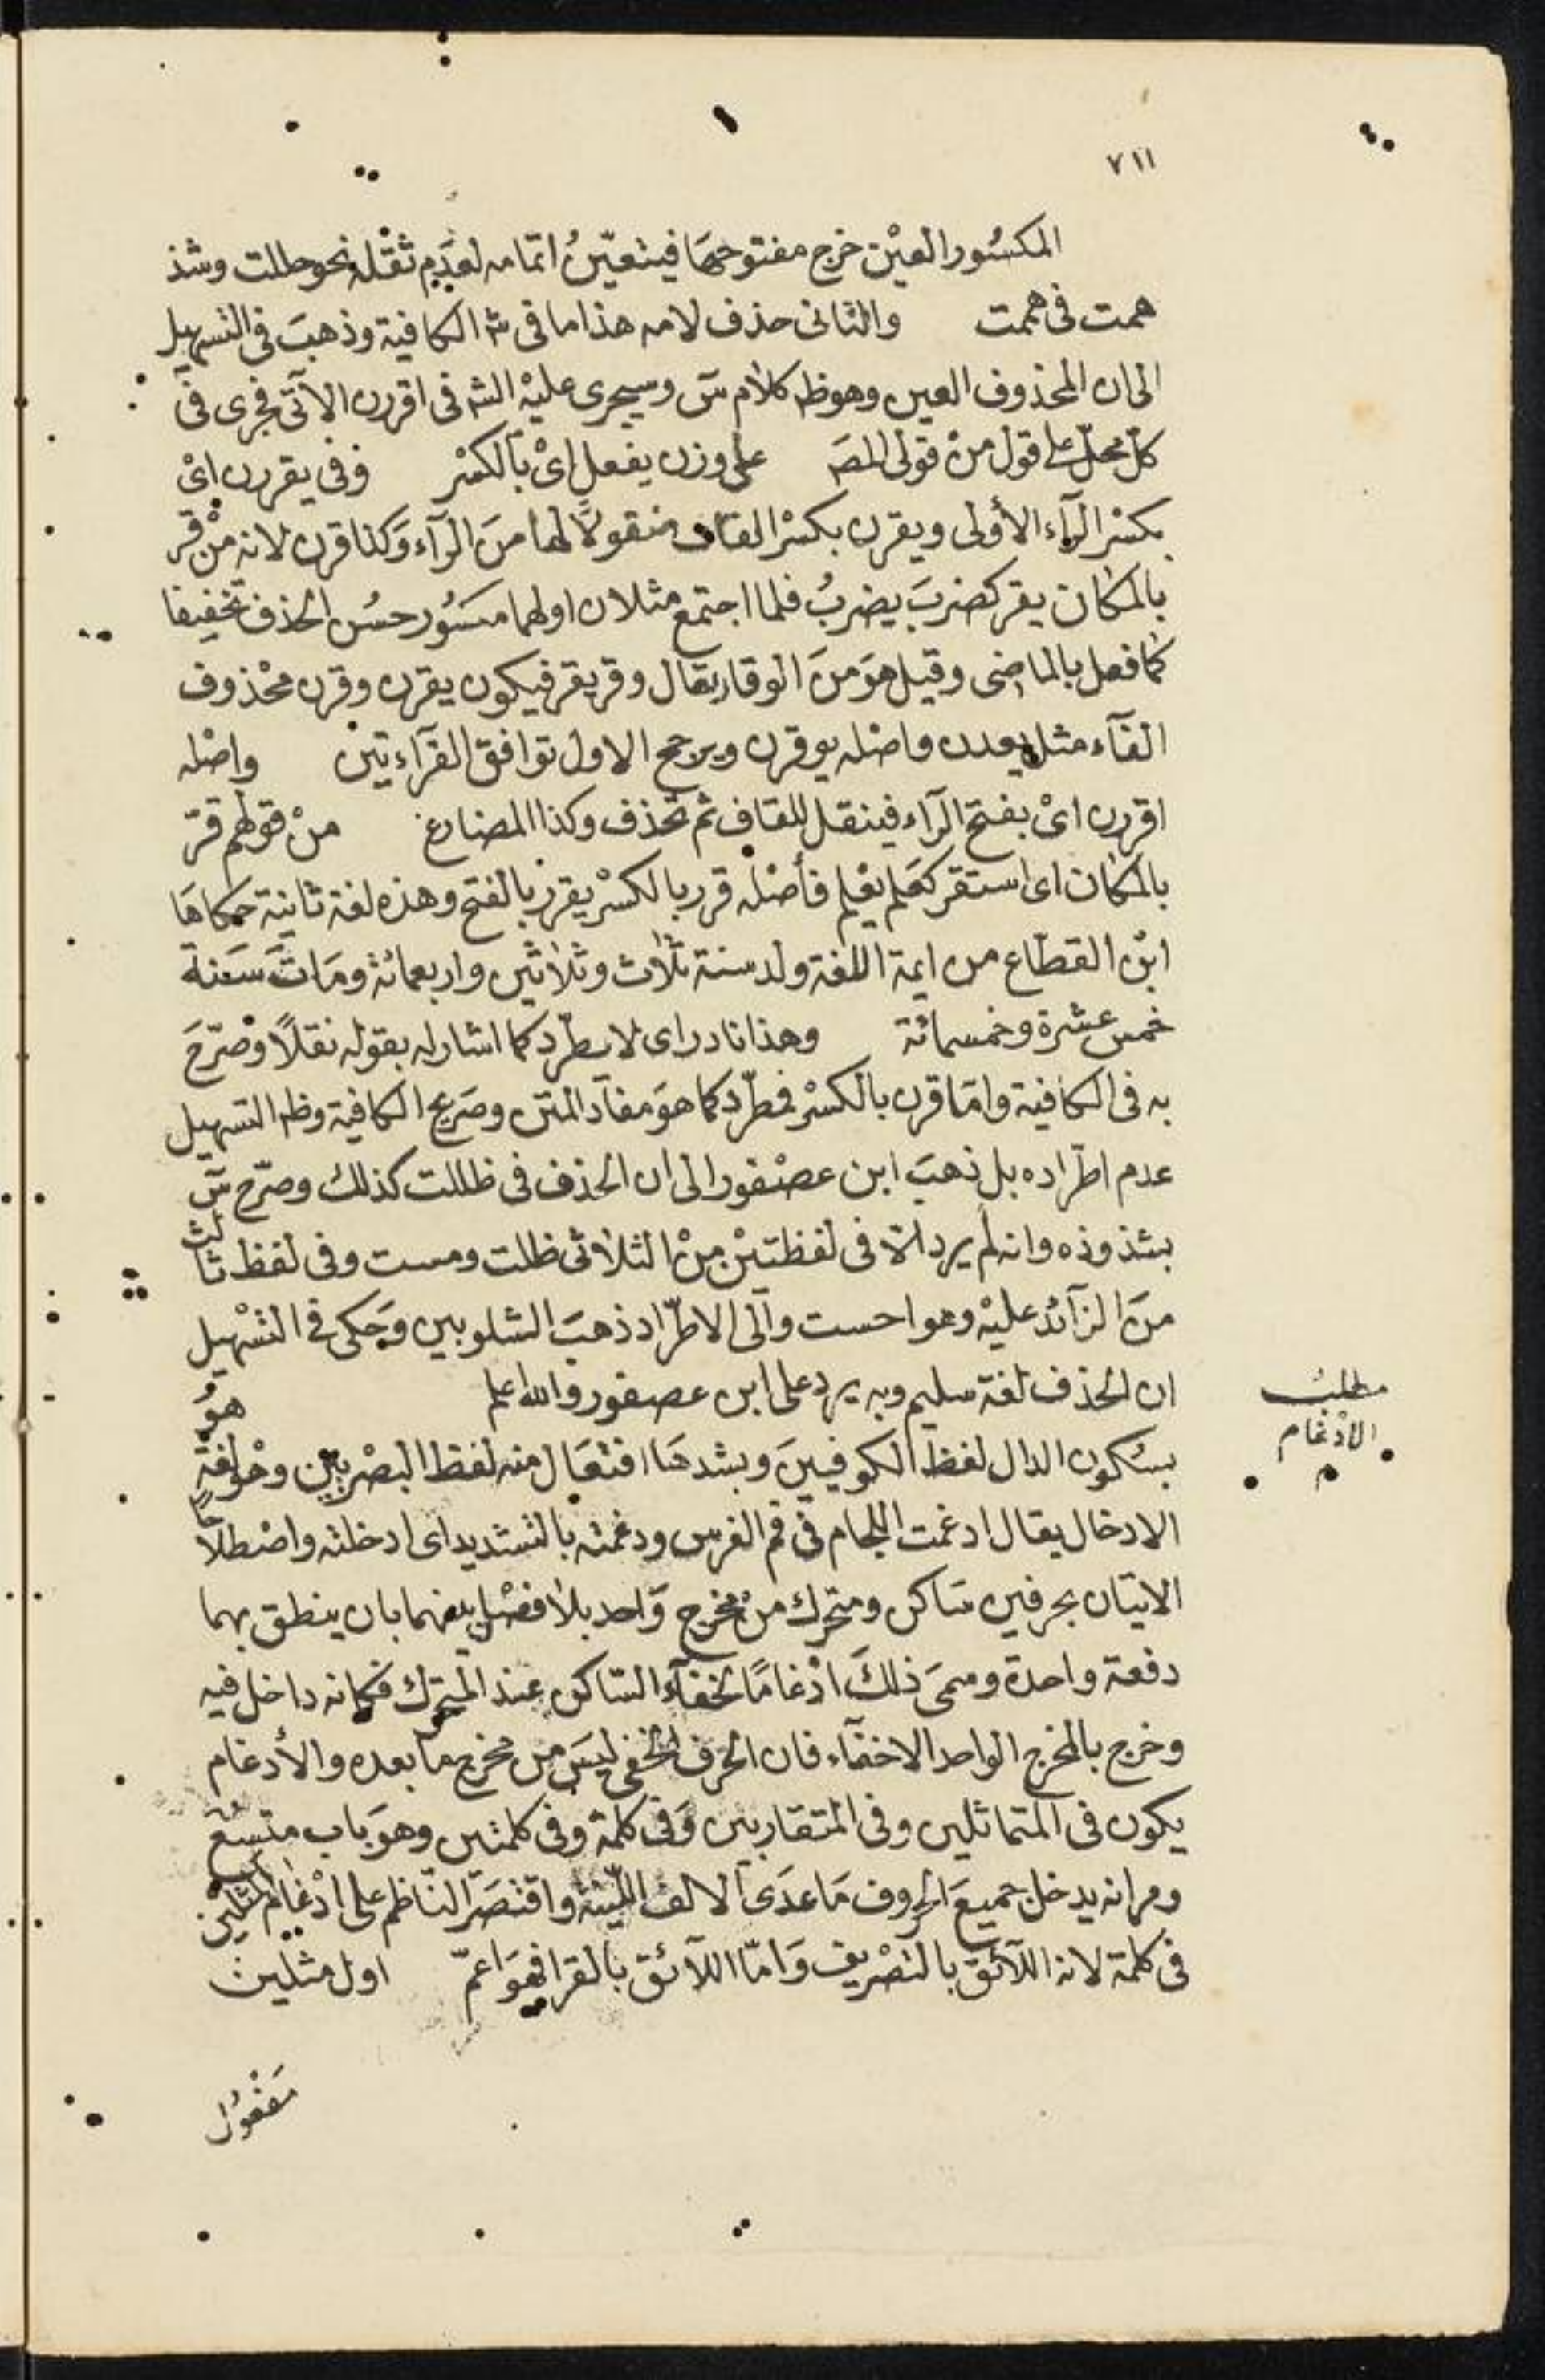 ٧١١
المكسُور العيْن خرج مفتوحها فيتعيّنُ اتمامه لعدَمِ ثقْله نحو حللت وشذ
همت في هممت والثانى حذف لامه هذا ما فى شر الكافية وذهبَ فى التسهيل
الى ان المحذوف العين وهو ظه كلام س وسيجرى عليْه الشه فى اقررن الآتى فجرى فى
كلّ محلّ على قول منْ قولى المصَ على وزن يفعل اىْ بالكسْر وفى يقررن اىْ
بكسْر الرآء الأولى ويقرن بكسْر القاف منقولاً لها منَ الرآء وَكذا قرن لانه منْ قر
بالمكان يقر كضربَ يضربُ فلما اجتمع مثلان اولهما مكسُور حسُن الحذف تخفيفا
كما فعل بالماضى وقيل هوَ منَ الوقار يقال وقر يقر فيكون يقرن وقرن محْذوف
الفآء مثل يعدن واصْله يوقرن ويرجح الاول توافق القرآءتين واصْله
اقررن اىْ بفتح الرآء فينقل للقاف ثم تحذف وكذا المضارع منْ قولهم قرّ
بالمكان اى استقر كعَلم يعْلم فأصْله قرر بالكسْر يقرر بالفتح وهذه لغة ثانية حكاهَا
ابْن القطّاع من ايمة اللغة ولد سنة ثلٰاث وثلٰاثين واربعمائة ومَاتَ سَنة
خمس عشرة وخمسمائة وهذا نادر اى لا يطّرد كما اشار له بقوله نقلاً وَصّرّحَ
به فى الكافية وامّا قرن بالكسْر فمطّرد كما هوَ مفاد المتن وصَريح الكافية وظه التسهيل
عدم اطّراده بل ذهبَ ابن عصْفور الى ان الحذف فى ظللت كذلك وصرّح س
بشذوذه وانه لم يرد الّا فى لفظتيْن منْ الثلاثى ظلت ومست وفى لفظ ثالث
منَ الزآئد عليْه وهو احست وآلى الاطّراد ذهبَ الشلوبين وَحكى فى التسْهيل
ان الحذف لغة سليم وبه يرد على ابن عصفور والله اعلم هوُ
مطلبُ
الادْغام
م
بسُكون الدال لفظ الكوفيينَ وبشدهَا افتعَال منه لفظ البصْريين وهْو لغة
الادخال يقال ادغمت اللجام فى فم الفرس ودغمته بالتشديد اى ادخلته واصْطلاحًا
الاتيان بحرفين سَاكن ومتحرك منْ مخرج وَاحد بلٰا فصْل بينهما بان ينطق بهما
دفعة واحدة وسمىَ ذلكَ ادْغامًا لخفآء السّاكن عند المتحرك فكانه داخل فيه
وخرج بالمخرج الواحد الاخفآء فان الحرف المخفى ليسَ من مخرج ما بعده والأدغام
يكون فى المتماثلين وفى المتقاربين وَفى كلمة وفى كلمتين وهوَ باب متسُعَ
ومرانه يدخل جميعَ الحروف مَا عدَى الالف الليّنة واقتصَر النّاظم على ادْغام المثلين
فى كلمة لانه اللآئق بالتصْريف وَامّا اللآئق بالقرا فهوَ اعمّ اول مثلين
مَفْعوُل